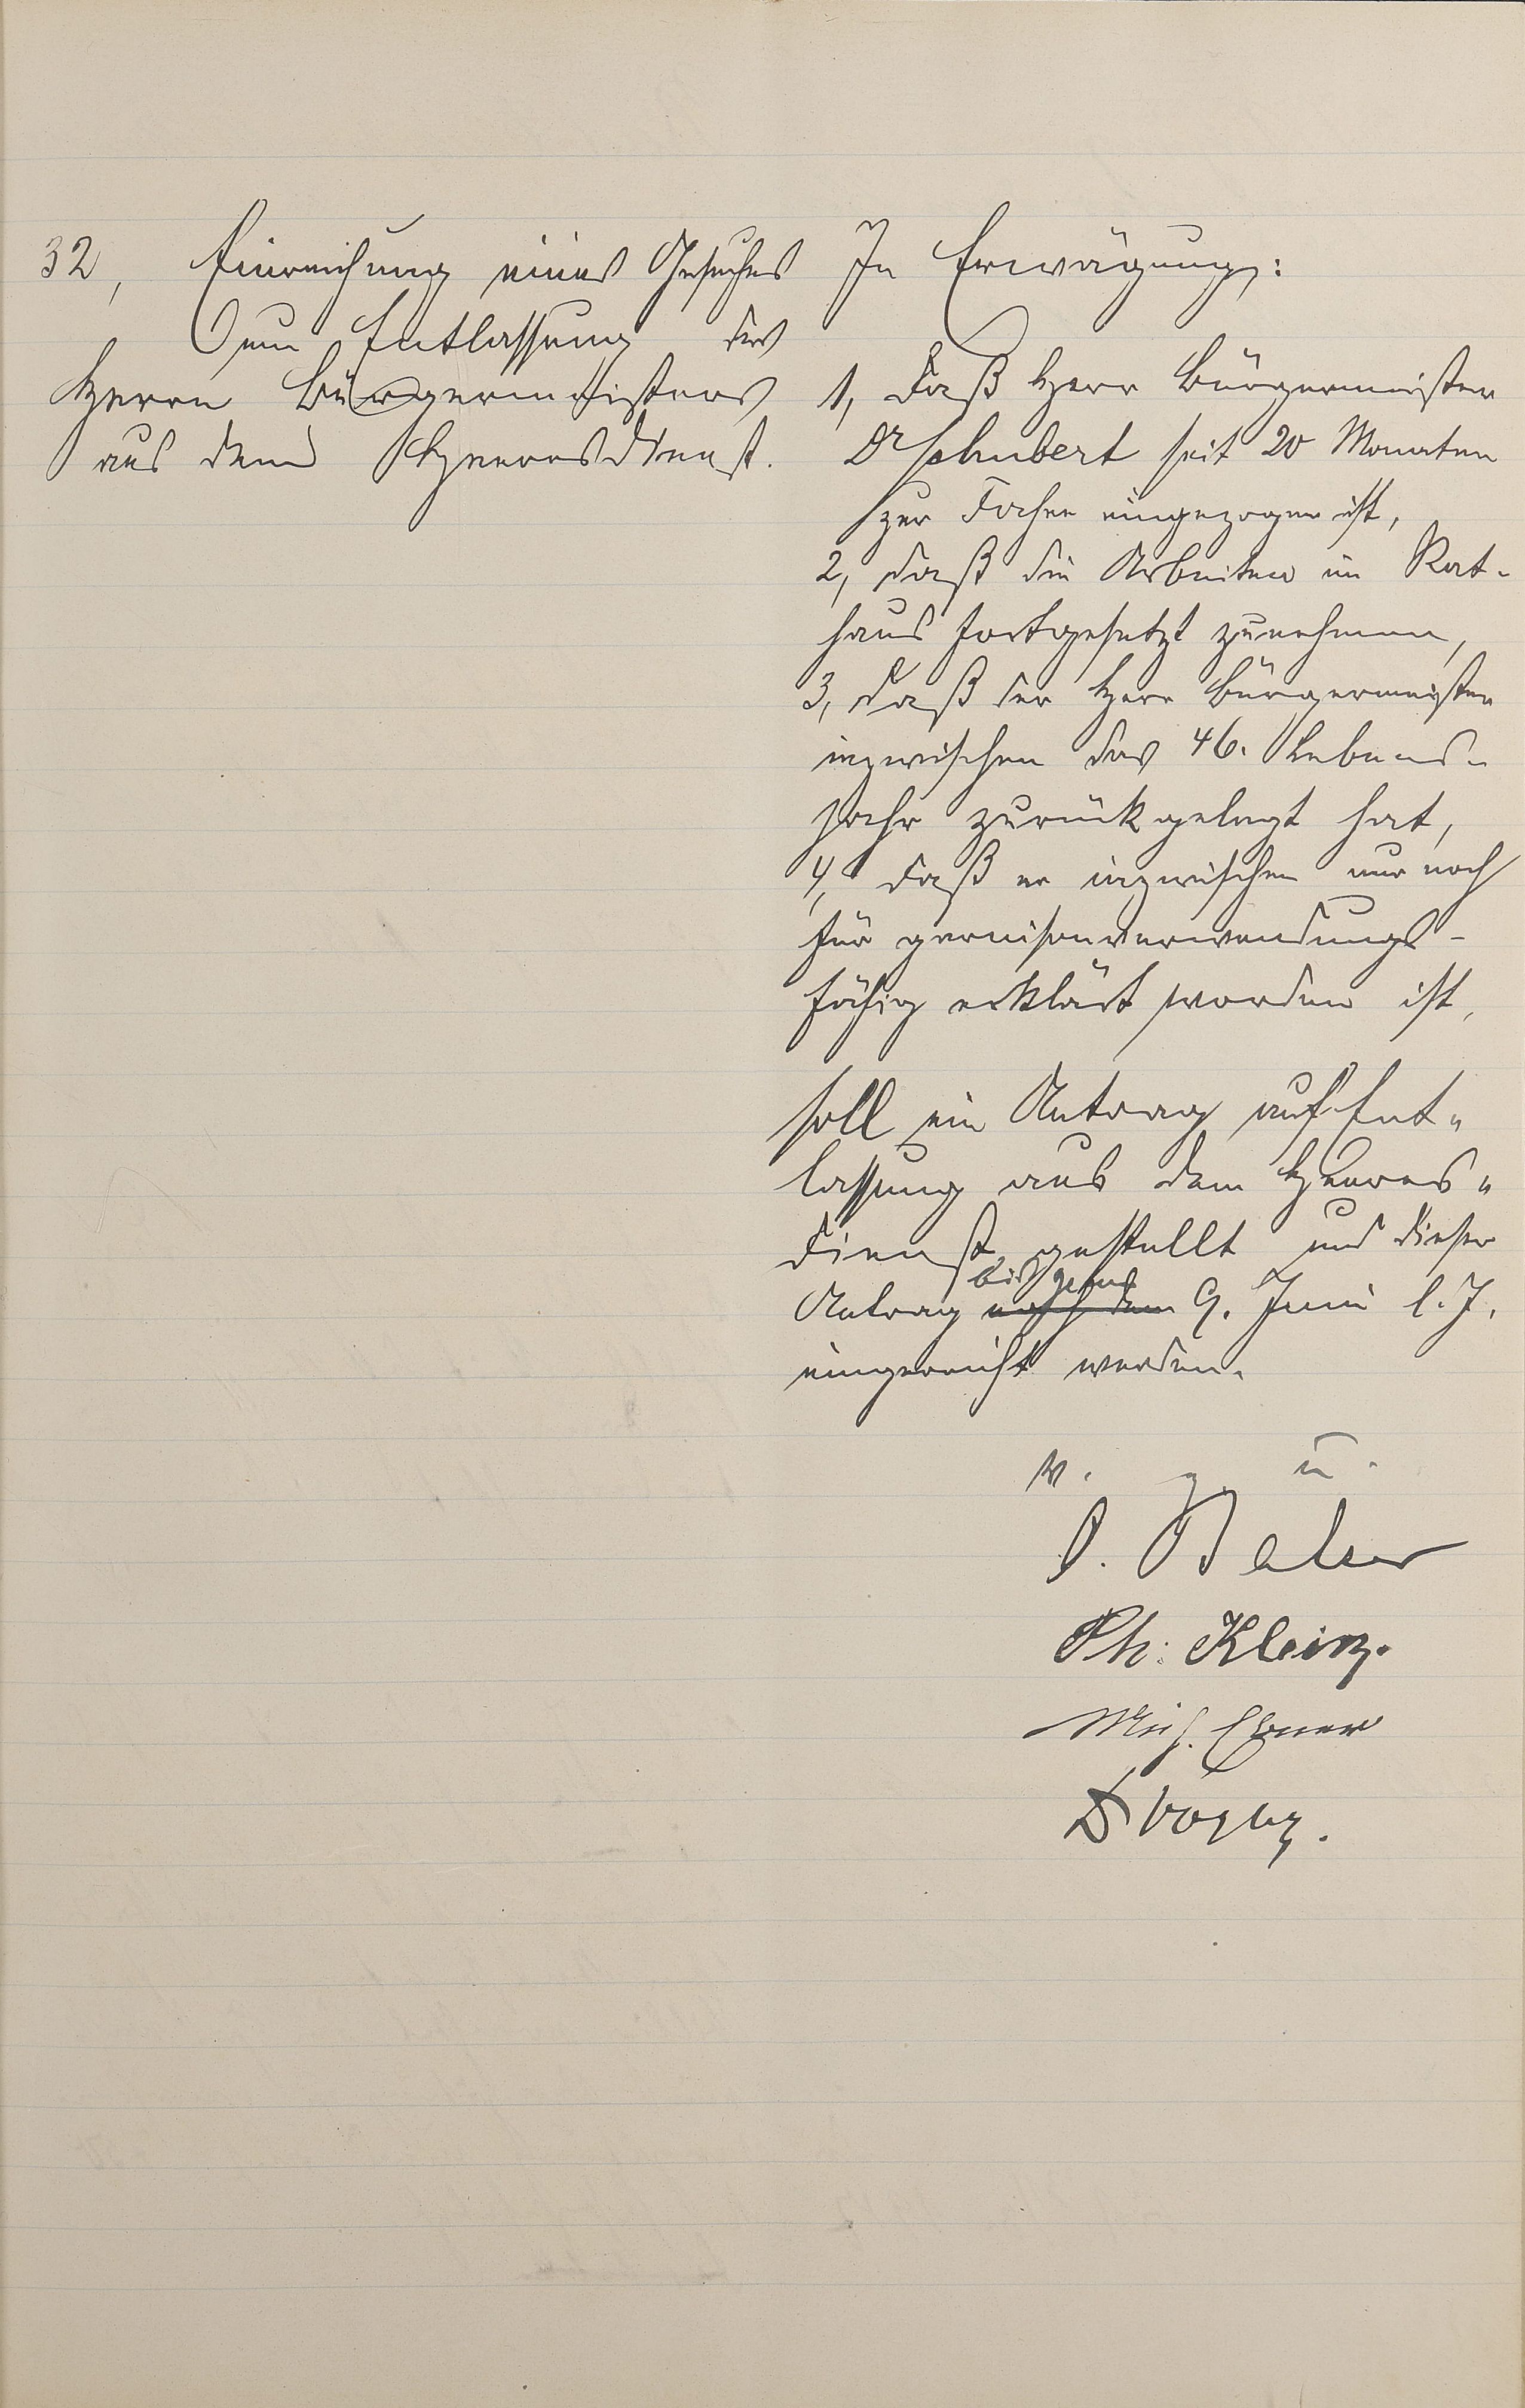 32, Einreichung eines Gesuches
um Entlassung des
Herrn Bürgermeisters
aus dem Heeresdienst.
In Erwägung:
1, daß Herr Bürgermeister
Dr Schubert seit 20 Monaten
zur Fahne eingezogen ist,
2, daß die Arbeiten im Rat-
haus fortgesetzt zunehmen,
3, daß der Herr Bürgermeister
inzwischen das 46. Lebens-
jahr zurückgelegt hat,
4, daß er inzwischen nur noch
für garnisonverwendungs-
fähig erklärt worden ist,
soll ein Antrag auf Ent-
lassung aus dem Heeres-
dienst gestellt und dieser
bis zum
Antrag nach dem 9. Juni l. J.
eingereicht werden.
v. g. u.
Ph: Klein.
Mich. Ebner